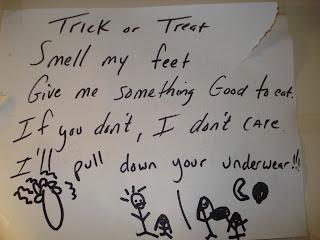 Trick or Treat
Smell my feet
Give me something Good to eat.
If you don't, I don't CARE.
I'll pull down your underwear!!!